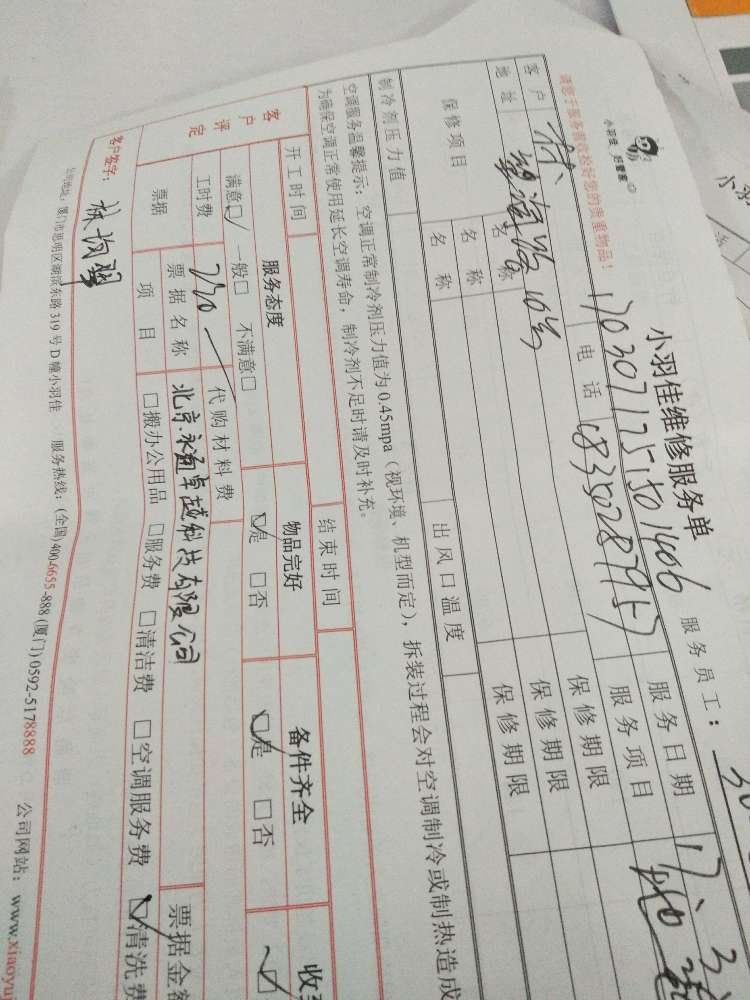 小羽佳 好管家
请您于服务前收拾好您的贵重物品!
小羽佳维修服务单
1703071751501406 服务员工:
客户 林 电话 服务日期 17.3
地址 望海路10号 服务项目
保修项目 名称 保修期限
名称 保修期限
名称 保修期限
制冷剂压力值 出风口温度
空调服务温馨提示:空调正常制冷剂压力值为0.45mpa(视环境、机型而定),拆装过程会对空调制冷或制热造成
为确保空调正常使用延长空调寿命,制冷剂不足时请及时补充。
开工时间 结束时间
客户评定 服务态度 物品完好 备件齐全
满意☑ 一般□ 不满意□ ☑是 □否 ☑是 □否 ☑
工时费 270 代购材料费
票据 票据名称 北京永通卓越科技有限公司 票据金
项目 □搬办公用品 □服务费 □清洁费 □空调服务费 ☑清洗费
客户签字:
公司地址:厦门市思明区湖滨东路319号D幢小羽佳 服务热线:(全国)400-6655-888(厦门)0592-5178888 公司网站:www.xiaoyuj